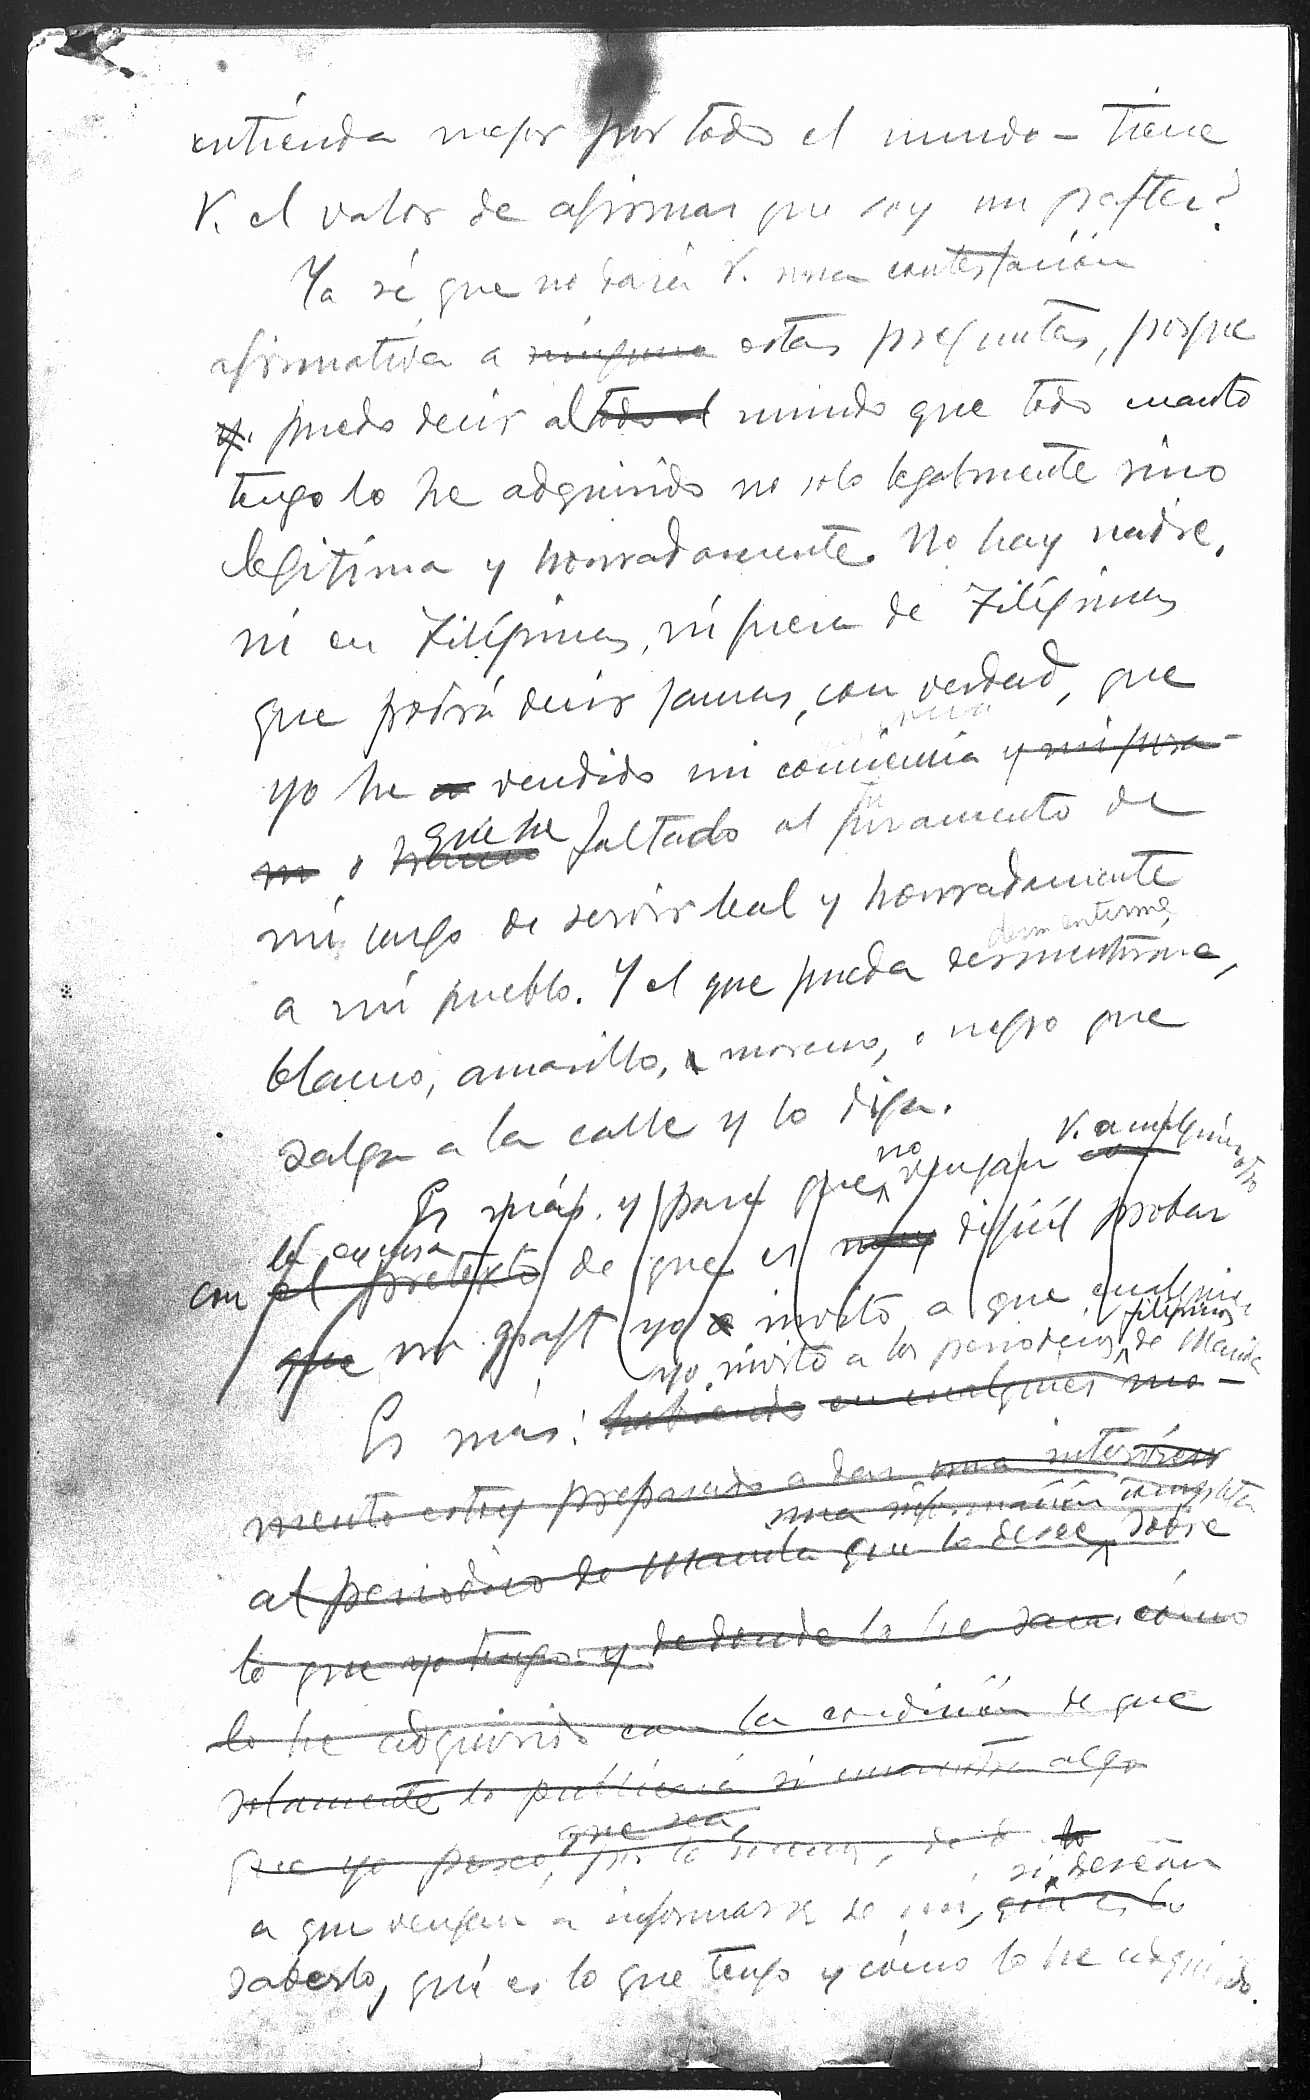 entienda mejor por todo el mundo — tiene
V. el valor de afirmar que soy un grafter?
Ya sé que no dará V. una contestación
afirmativa a ninguna estas preguntas, porque
yo puedo decir al todo el mundo que todo cuanto
tengo lo he adquirido no solo legalmente sino
legítima y honradamente. No hay nadie,
ni en Filipinas, ni fuera de Filipinas
que podrá decir jamas, con verdad, que
yo he vendido mi conciencia y mi pura-
o que he faltado al juramento de
mi cargo de servir leal y honradamente
desmentirme
a mi pueblo. Y el que pueda desmentirme,
blanco, amarillo, moreno, o negro que
salga a la calle y lo diga.
Es más, y para que no vengan V. o cualquier otro
la excusa
con el pretexto de que es muy difícil probar
que un graft yo invito a que cualquier
yo invito a los periódicos filipinos de Manila
Es más: habiendo en cualquier mo-
mento estoy preparado a dar una interview
una información completa
al periódico de Manila que la desee sobre
lo que yo tengo y de donde lo he cómo
lo he adquirido con la condición de que
solamente lo publicará si encuentra algo
que sea,
que yo poseo, por lo menos, de
lo
si desean
a que vengan a informarse de mí, qué es lo
saberlo, qué es lo que tengo y cómo lo he adquirido.